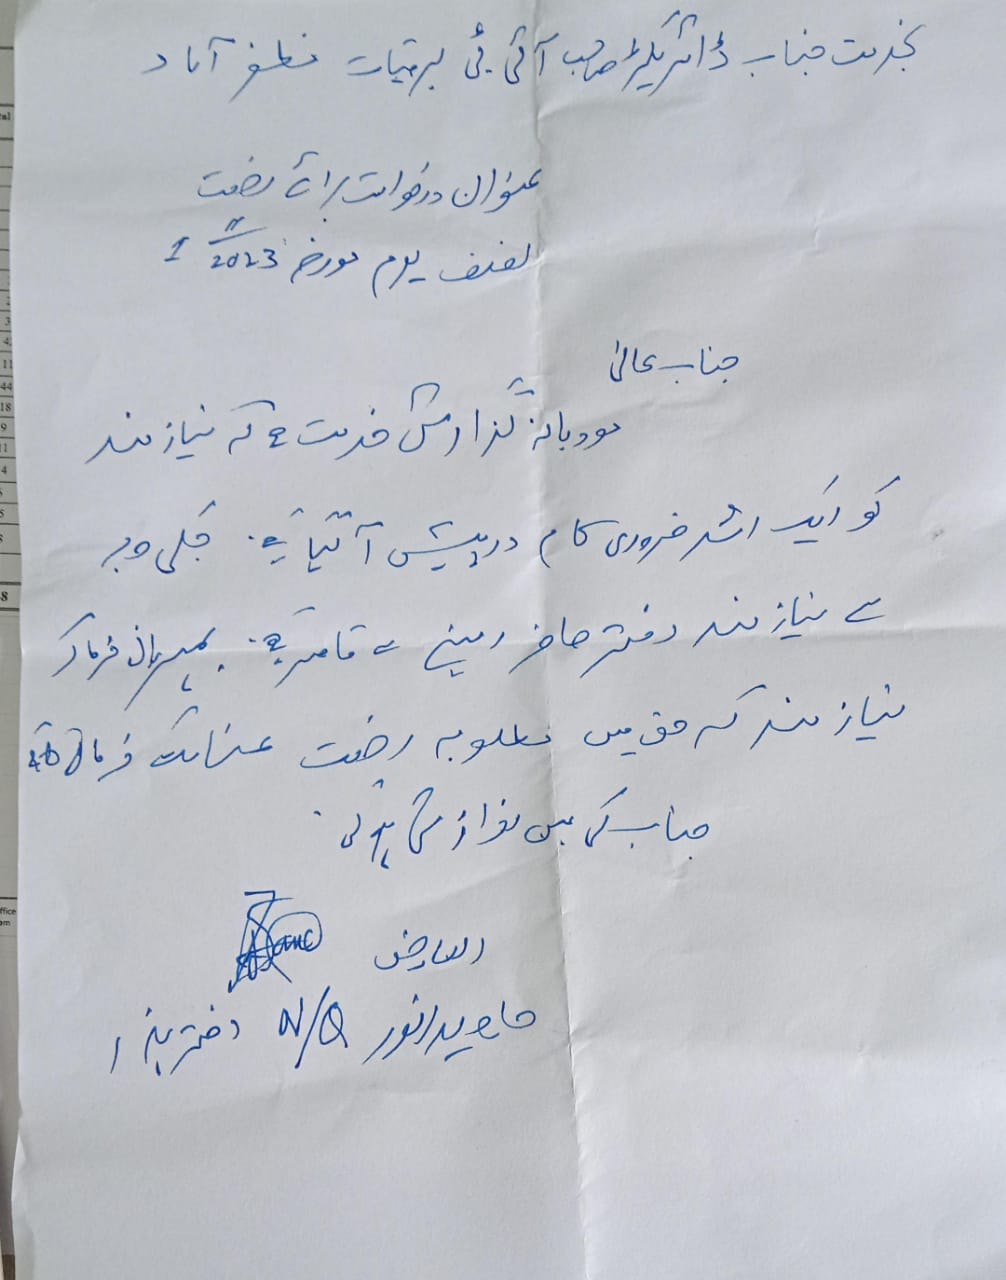 بخدمت جناب ڈائریکٹر صاحب آئی ٹی برقیات مظفر آباد
عنوان درخواست برائے رخصت
نصف یوم مورخہ 2023 1
جناب عالیٰ
مودبانہ گزارش خدمت ہے کہ نیاز مند
کو ایک اشد ضروری کام درپیش آ گیا ہے۔ جسکی وجہ
سے نیاز مند دفتر حاضر رہنے سے قاصر ہے۔ مہربانی فرما کر
نیاز مند کے حق میں مطلوبہ رخصت عنائت فرمائی
جناب کی عین نوازش ہو گی۔
العارض
جاوید انور N/Q دفتر ہذا